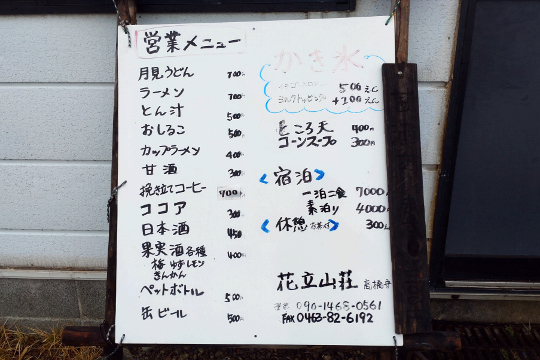 営業メニュー
月見うどん 700円
ラーメン 700
とん汁 500
おしるこ 500
カップラーメン 400
甘酒 300
挽き立てコーヒー 400
ココア 300
日本酒 450
果実酒各種 400
梅 ゆず レモン
きんかん
ペットボトル 500
缶ビール 500
かき氷
500えん
ミルクトッピング +100えん
ところ天 400円
コーンスープ 300円
宿泊
一泊二食 7000
素泊り 4000
休憩 300
花立山荘 高橋
090-1468-0561
FAX 0463-82-6192